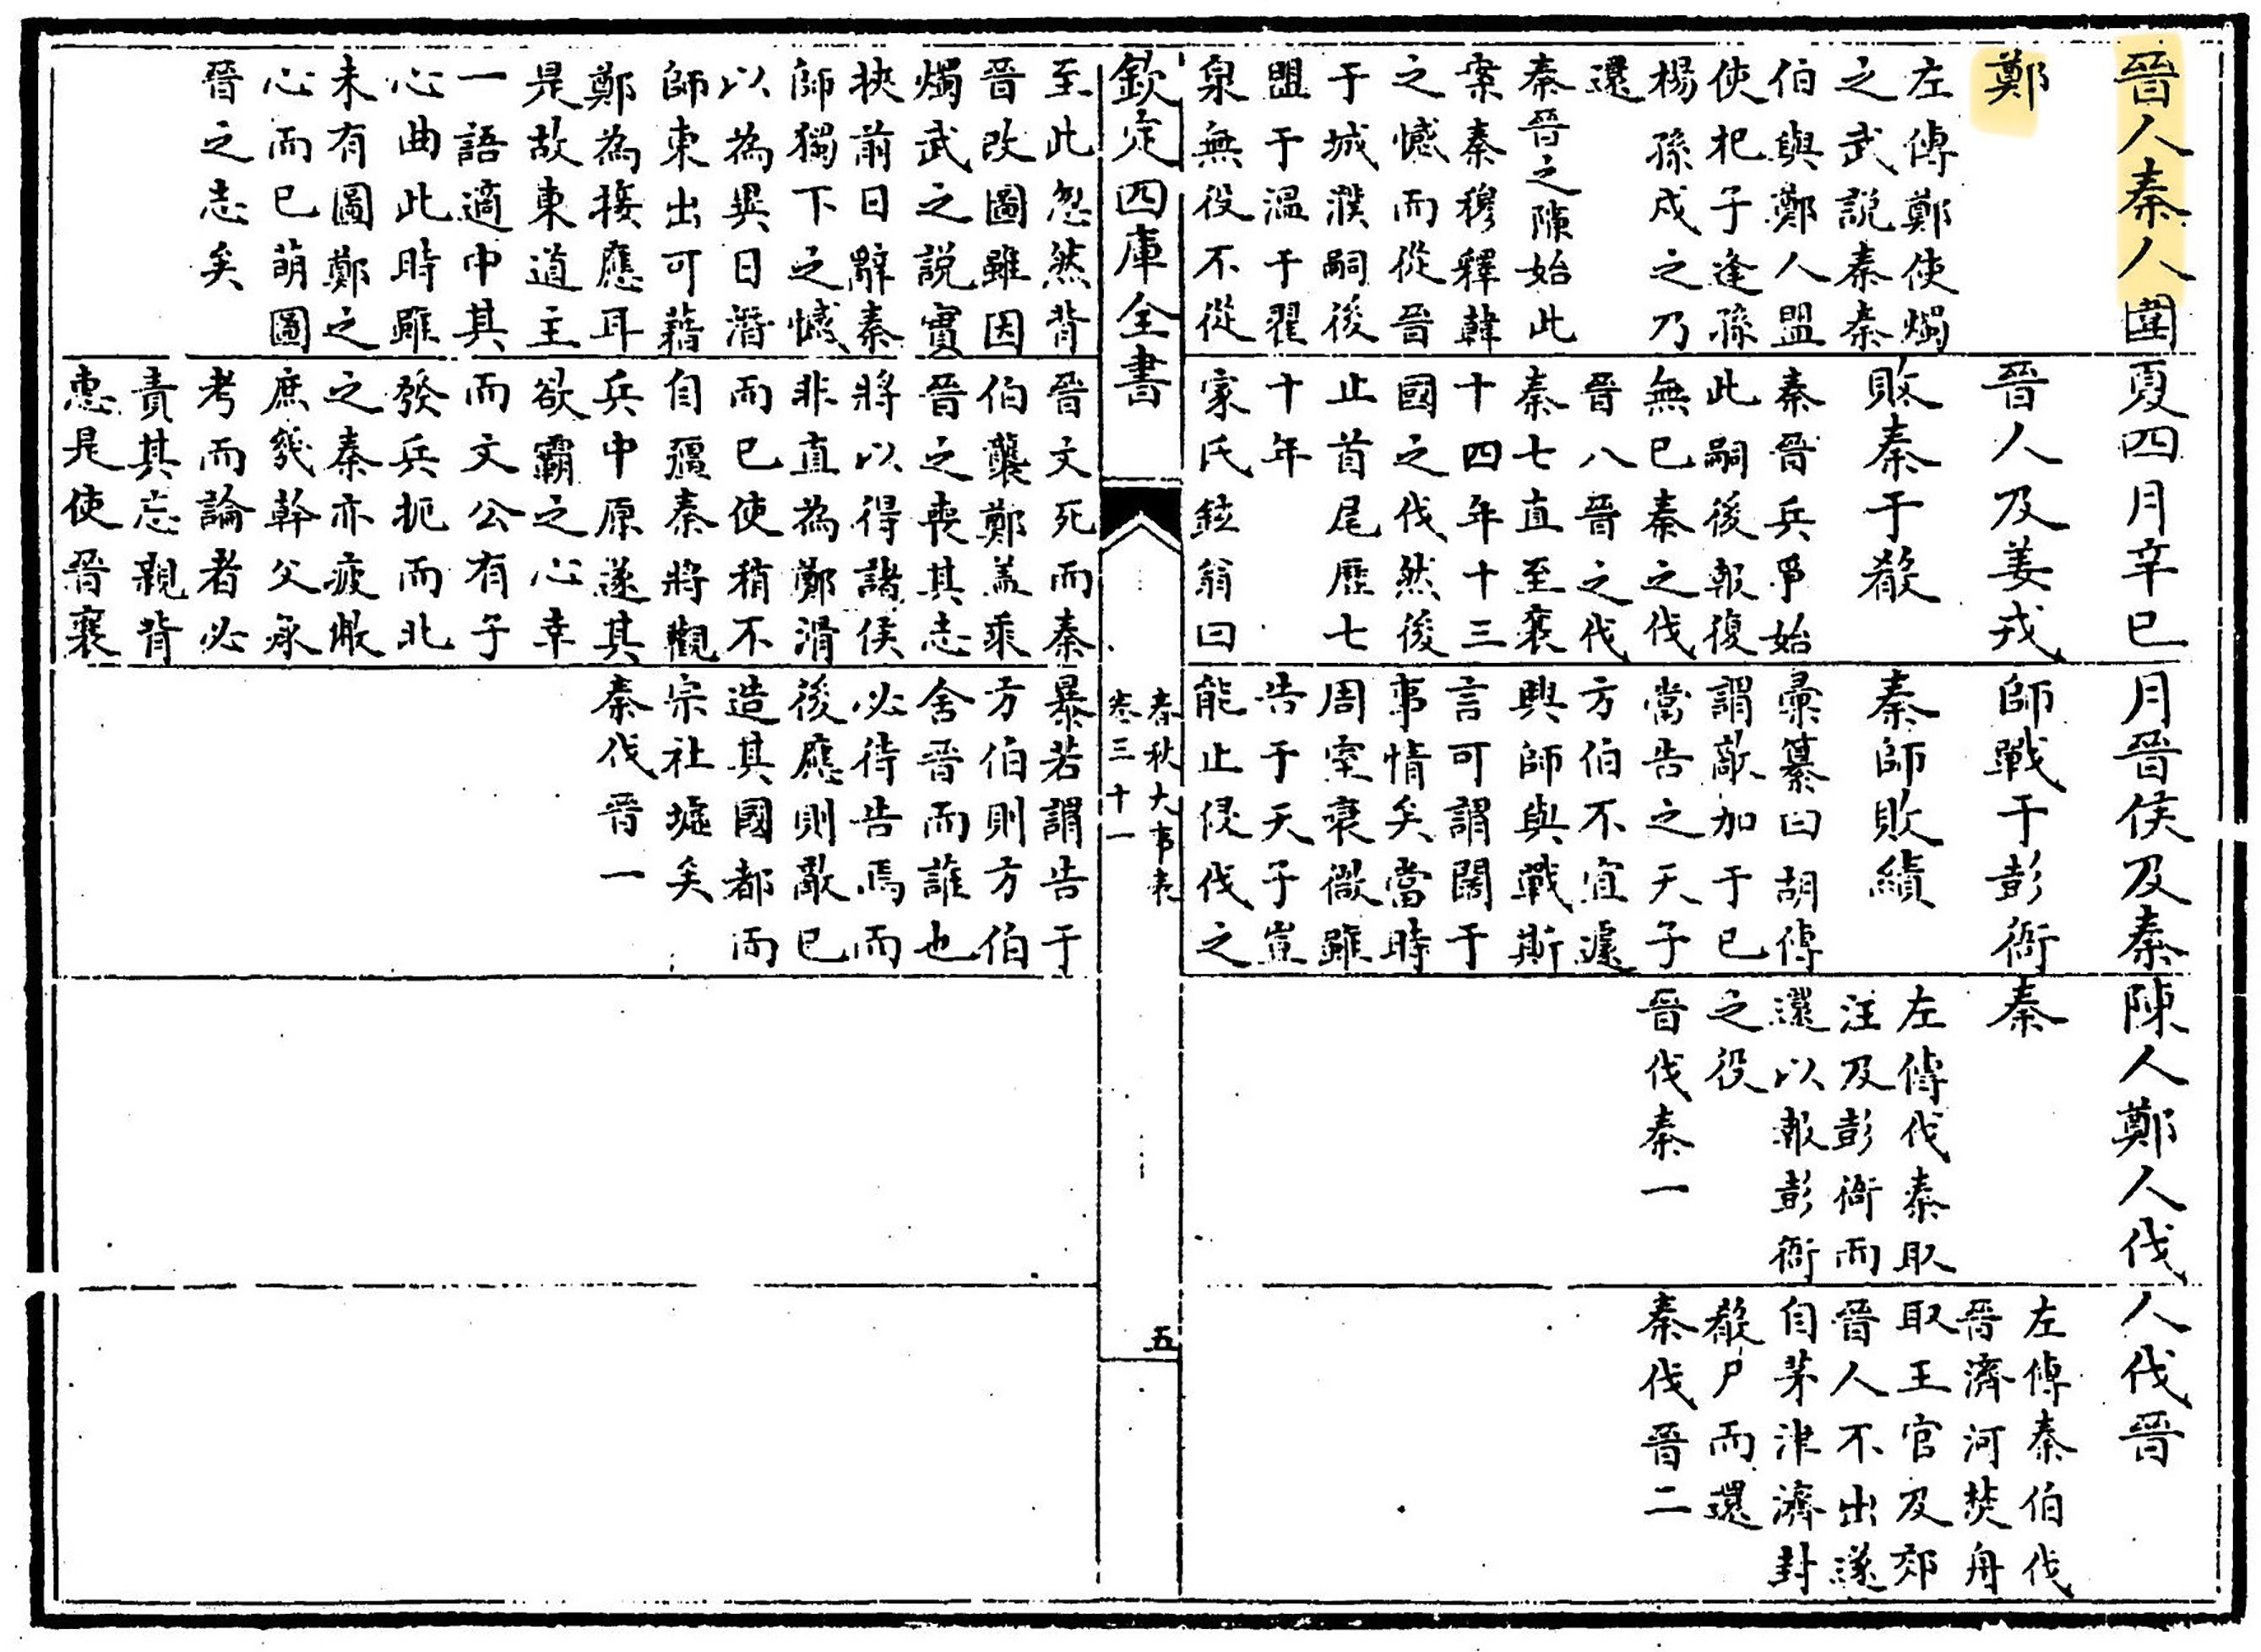 晉人秦人圍
鄭
左傳鄭使燭
之武說秦秦
伯與鄭人盟
使杞子逢孫
楊孫戍之乃
還
秦晉之隙始此
案秦穆釋韓
之憾而從晉
于城濮嗣後
盟于溫于翟
泉無役不從
夏四月辛巳
晉人及姜戎
敗秦于殽
秦晉兵爭始
此嗣後報復
無已秦之伐
晉八晉之伐
秦七直至襄
十四年十三
國之伐然後
止首尾歷七
十年
家氏鉉翁曰
月晉侯及秦
師戰于彭衙
秦師敗績
彚纂曰胡傳
謂敵加于已
當告之天子
方伯不宜遽
興師與戰斯
言可謂闊于
事情矣當時
周室衰微雖
告于天子豈
能止侵伐之
陳人鄭人伐
秦
左傳伐秦取
汪及彭衙而
還以報彭衙
之役
晉伐秦一
人伐晉
左傳秦伯伐
晉濟河焚舟
取王官及郊
晉人不出遂
自茅津濟封
殽尸而還
秦伐晉二
欽定四庫全書
春秋大事表
卷三十一
五
至此忽然背
晉改圖雖因
燭武之說實
挾前日辭秦
師獨下之憾
以為異日潛
師東出可藉
鄭為接應耳
是故東道主
一語適中其
心曲此時雖
未有圖鄭之
心而已萌圖
晉之志矣
晉文死而秦
伯襲鄭蓋乘
晉之喪其志
將以得諸侯
非直為鄭滑
而已使稍不
自彊秦將觀
兵中原遂其
欲霸之心幸
而文公有子
發兵扼而北
之秦亦疲敝
庶幾幹父承
考而論者必
責其忘親背
惠是使晉襄
暴若謂告于
方伯則方伯
舍晉而誰也
必待告焉而
後應則敵已
造其國都而
宗社墟矣
秦伐晉一